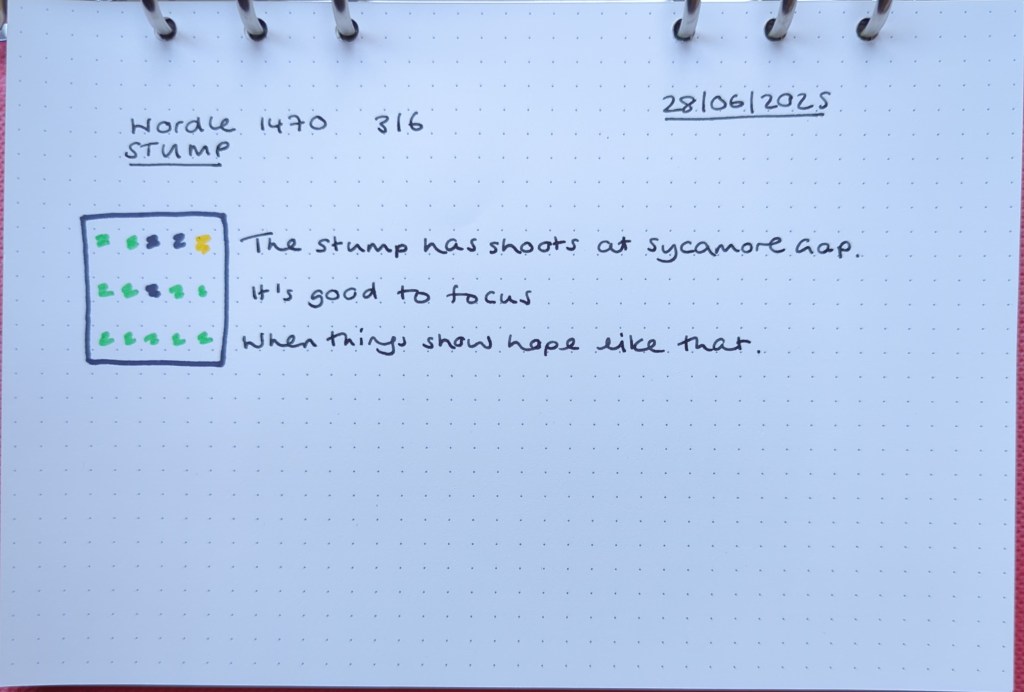 28/06/2025
Wordle 1470 3/6
STUMP
The stump has shoots at Sycamore Gap.
It's good to focus
When things show hope like that.